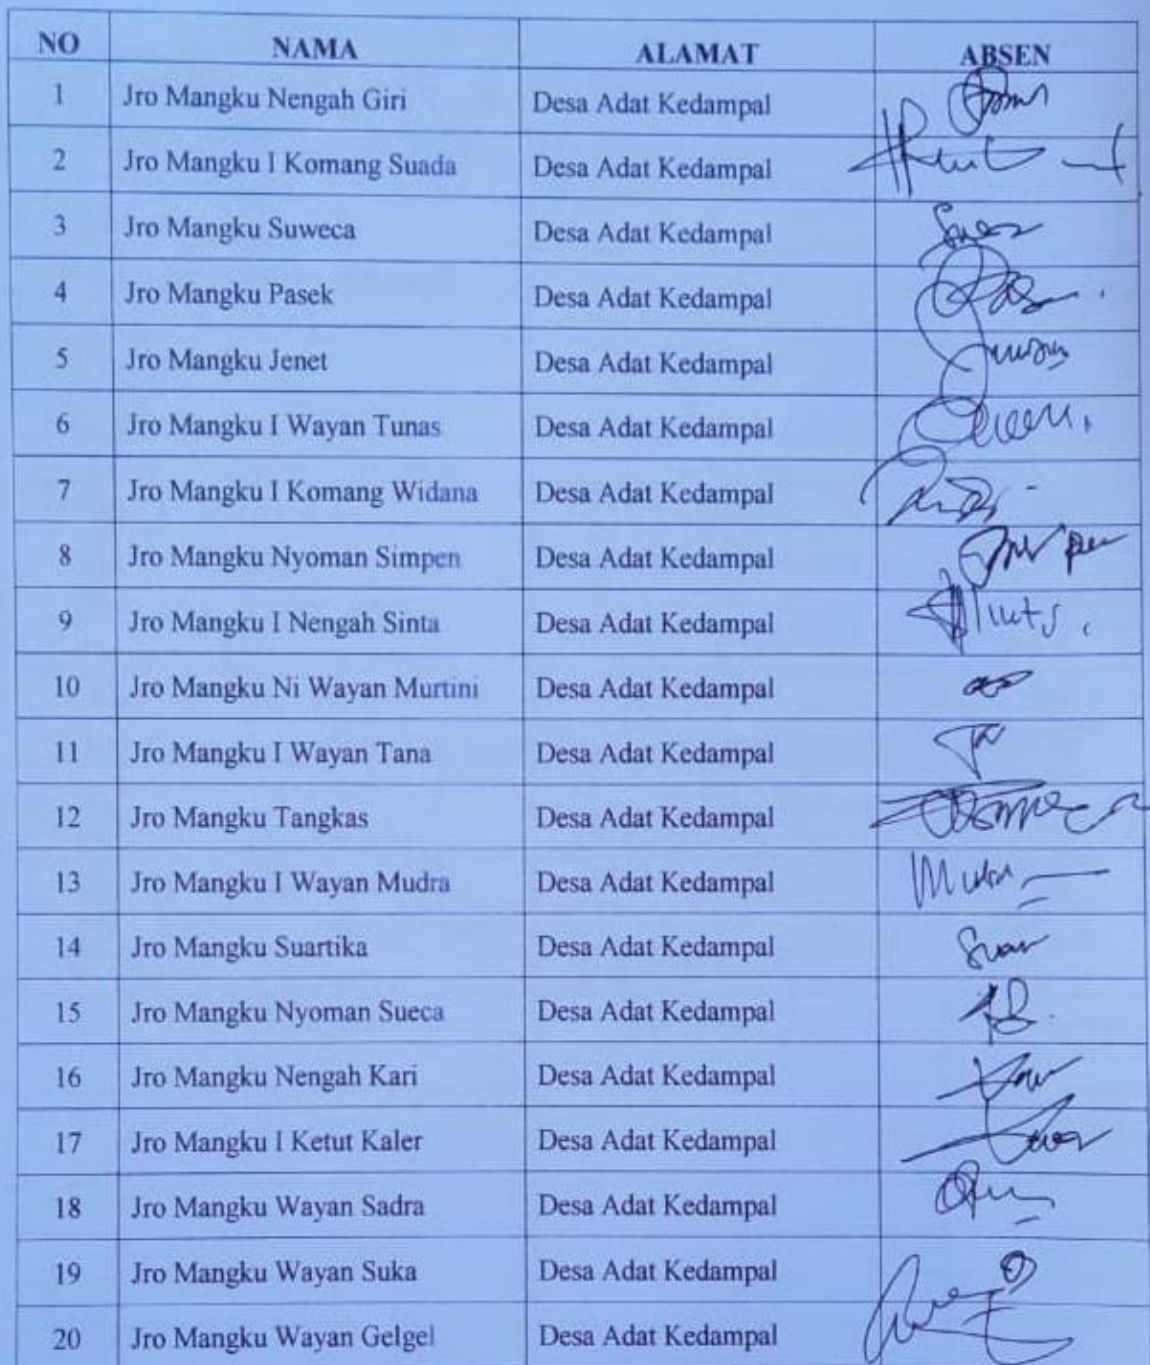 NO NAMA ALAMAT ABSEN
1 Jro Mangku Nengah Giri Desa Adat Kedampal
2 Jro Mangku I Komang Suada Desa Adat Kedampal
3 Jro Mangku Suweca Desa Adat Kedampal
4 Jro Mangku Pasek Desa Adat Kedampal
5 Jro Mangku Jenet Desa Adat Kedampal
6 Jro Mangku I Wayan Tunas Desa Adat Kedampal
7 Jro Mangku I Komang Widana Desa Adat Kedampal
8 Jro Mangku Nyoman Simpen Desa Adat Kedampal
9 Jro Mangku I Nengah Sinta Desa Adat Kedampal
10 Jro Mangku Ni Wayan Murtini Desa Adat Kedampal
11 Jro Mangku I Wayan Tana Desa Adat Kedampal
12 Jro Mangku Tangkas Desa Adat Kedampal
13 Jro Mangku I Wayan Mudra Desa Adat Kedampal
14 Jro Mangku Suartika Desa Adat Kedampal
15 Jro Mangku Nyoman Sueca Desa Adat Kedampal
16 Jro Mangku Nengah Kari Desa Adat Kedampal
17 Jro Mangku I Ketut Kaler Desa Adat Kedampal
18 Jro Mangku Wayan Sadra Desa Adat Kedampal
19 Jro Mangku Wayan Suka Desa Adat Kedampal
20 Jro Mangku Wayan Gelgel Desa Adat Kedampal